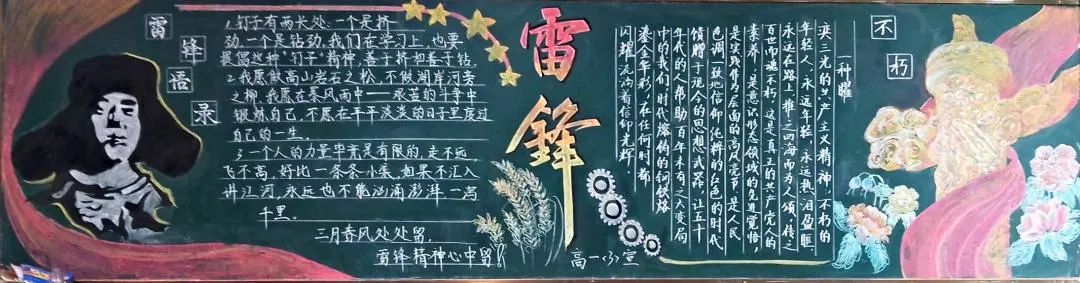 雷锋语录
1.钉子有两长处:一个是挤
劲,一个是钻劲,我们在学习上,也要
提倡这种“钉子”精神,善于挤和善于钻.
2.我愿做高山岩石之松,不做湖岸河旁
之柳,我愿在暴风雨中——艰苦的斗争中
锻炼自己,不愿在平平淡淡的日子里度过
自己的一生.
3.一个人的力量毕竟是有限的,走不远,
飞不高,好比一条条小渠,如果不汇入
井江河,永远也不能汹涌澎湃一泻
千里。
三月春风处处留,
雷锋精神心中留!
雷鋒
高一<3>宣
不朽
一种曜
奕三光的共产主义精神,不朽的
年轻人,永远年轻,永远热泪盈眶
永远在路上,推之四海而为人颂,传之
百世而魂不朽,这是真正的共产党人的
素养,是意识形态领域的先进觉悟,
是实践作为层面的高风亮节,是人民
色调一致地信仰纯粹的红色的时代
馈赠于现今的思想武器,让五十
年代的人帮助百年未有之大变局
中的我们,时代熔铸的钢铁熔
鎏金华彩,在任何时都
闪耀流淌着信仰光辉.